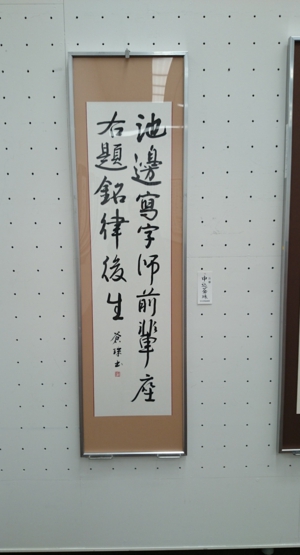 池邊寫字師前輩座
右題銘律後生